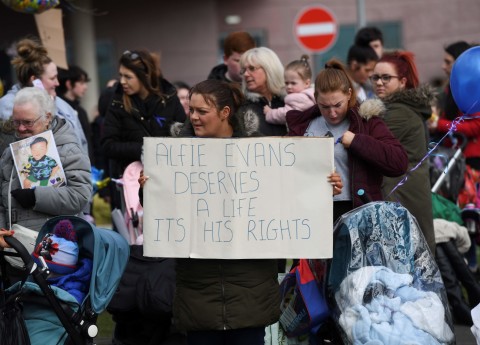 ALFIE EVANS
DESERVES
A LIFE
ITS HIS RIGHTS